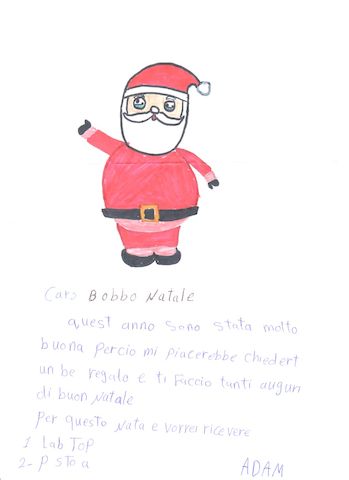 Caro Bobbo Natale
quest anno sono stata molto
buona percio mi piacerebbe chiedert
un be regalo e ti faccio tanti auguri
di buon Natale
per questo Nata e vorrei ricevere
1 Lab Top
2- P sto a
ADAM